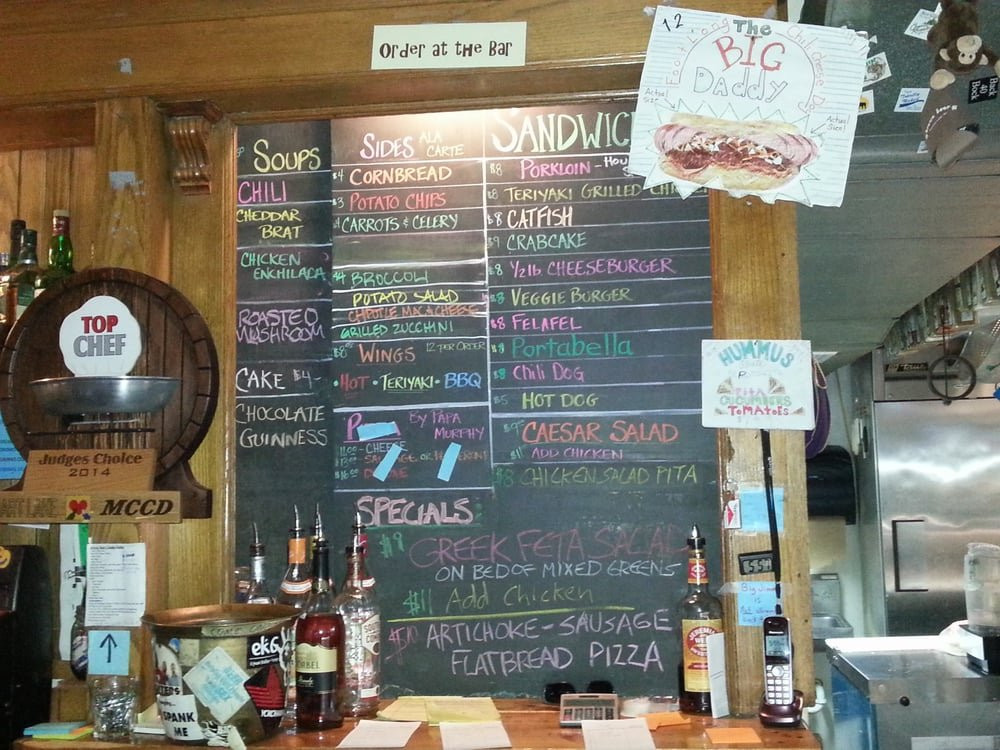 Order at the Bar
12
The
BIG
Daddy
Foot Long
Chili Cheese Dog
Actual
Size
Actual
Size!
SOUPS
CHILI
CHEDDAR
BRAT
CHICKEN
ENCHILADA
ROASTED
MUSHROOM
CAKE $4-
CHOCOLATE
GUINNESS
SIDES ALA
CARTE
$4 CORNBREAD
$3 POTATO CHIPS
CARROTS & CELERY
$4 BROCCOLI
POTATO SALAD
CHIPOTLE MAC & CHEESE
GRILLED ZUCCHINI
$8 WINGS 12 PER ORDER
• HOT • TERIYAKI • BBQ
BY PAPA
MURPHY
CHEESE
SANDWIC
$8 PORKLOIN - HOU
$8 TERIYAKI GRILLED CHICK
$8 CATFISH
$9 CRABCAKE
$8 1/2 lb CHEESEBURGER
$8 VEGGIE BURGER
$8 FELAFEL
$8 Portabella
$8 Chili Dog
$5 HOT DOG
$9 CAESAR SALAD
$11 ADD CHICKEN
$8 CHICKEN SALAD PITA
SPECIALS
$9 GREEK FETA SALAD
ON BED OF MIXED GREENS
$11 Add Chicken
$10 ARTICHOKE-SAUSAGE
FLATBREAD PIZZA
HUMMUS
PITA
CUCUMBERS
TOMATOES
TOP
CHEF
Judges Choice
2014
MCCD
ekG
SPANK
ME